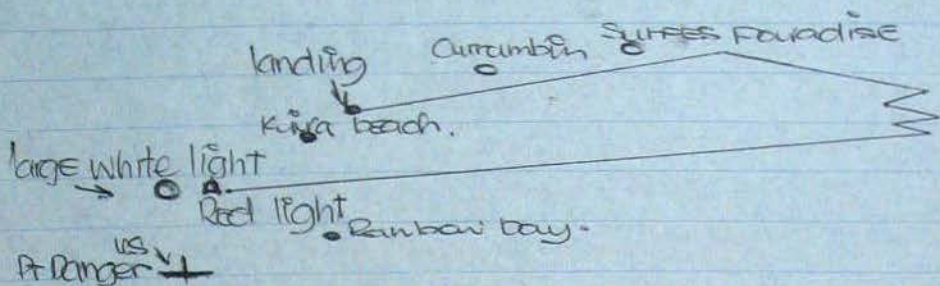 Currumbin
Surfers Paradise
landing
Kirra beach.
large white light
Red light
Rainbow bay.
us
Pt Danger